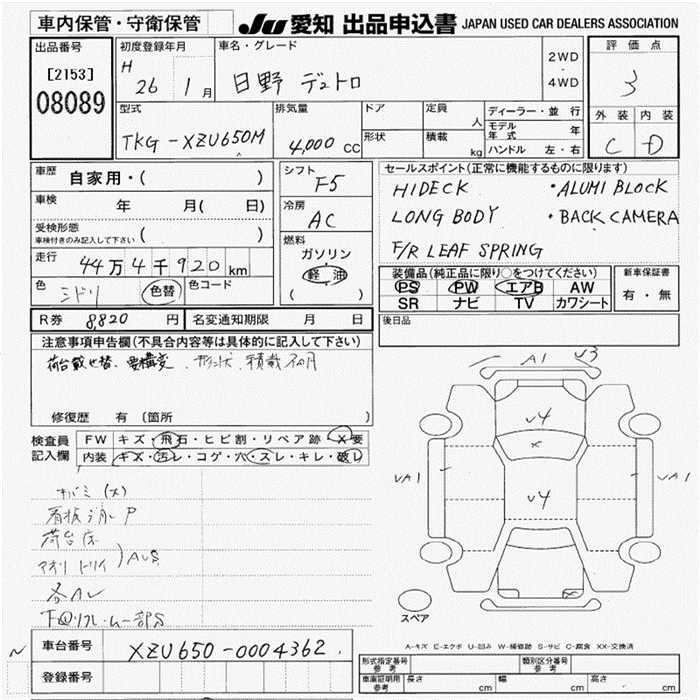 車内保管・守衛保管
JU 愛知 出品申込書 JAPAN USED CAR DEALERS ASSOCIATION
出品番号
[2153]
08089
初度登録年月
H 26 1月
車名・グレード
日野 デュトロ
2WD
・
4WD
評価点
3
外装 内装
C D
型式
TKG-XZU650M
排気量
4,000 CC
ドア
形状
定員
人
積載
kg
ディーラー・並行
モデル年式 年
ハンドル 左・右
車歴
自家用・( )
車検 年 月( 日)
受検形態
車検付きのみ記入して下さい ( )
走行
44万4千920km
色
ミドリ
色替
色コード
シフト
F5
冷房
AC
燃料
ガソリン
軽油
( )
セールスポイント(正常に機能するものに限ります)
HIDECK ・ALUMI BLOCK
LONG BODY ・BACK CAMERA
F/R LEAF SPRING
装備品(純正品に限り○をつけてください)
PS PW エアB AW
SR ナビ TV カワシート
新車保証書
有・無
R券 8,820 円
名変通知期限 月 日
後日品
注意事項申告欄(不具合内容等は具体的に記入して下さい)
荷台載せ替、要構変、形状、積載不明
修復歴 有 (箇所
検査員記入欄
FW キズ・飛石・ヒビ割・リペア跡・X要
内装 キズ・汚レ・コゲ・穴・スレ・キレ・破レ
看板消し P
荷台床
アオリ
各AU
A1
V3
V4
X
V4
VA1
VA1
X
スペア
A-キズ E-エクボ U-凹み W-補修跡 S-サビ C-腐食 XX-交換済
車台番号
XZU650-0004362
登録番号
形式指定番号
参考
類別区分番号
参考
車庫証明用
参考
長さ cm
幅 cm
高さ cm